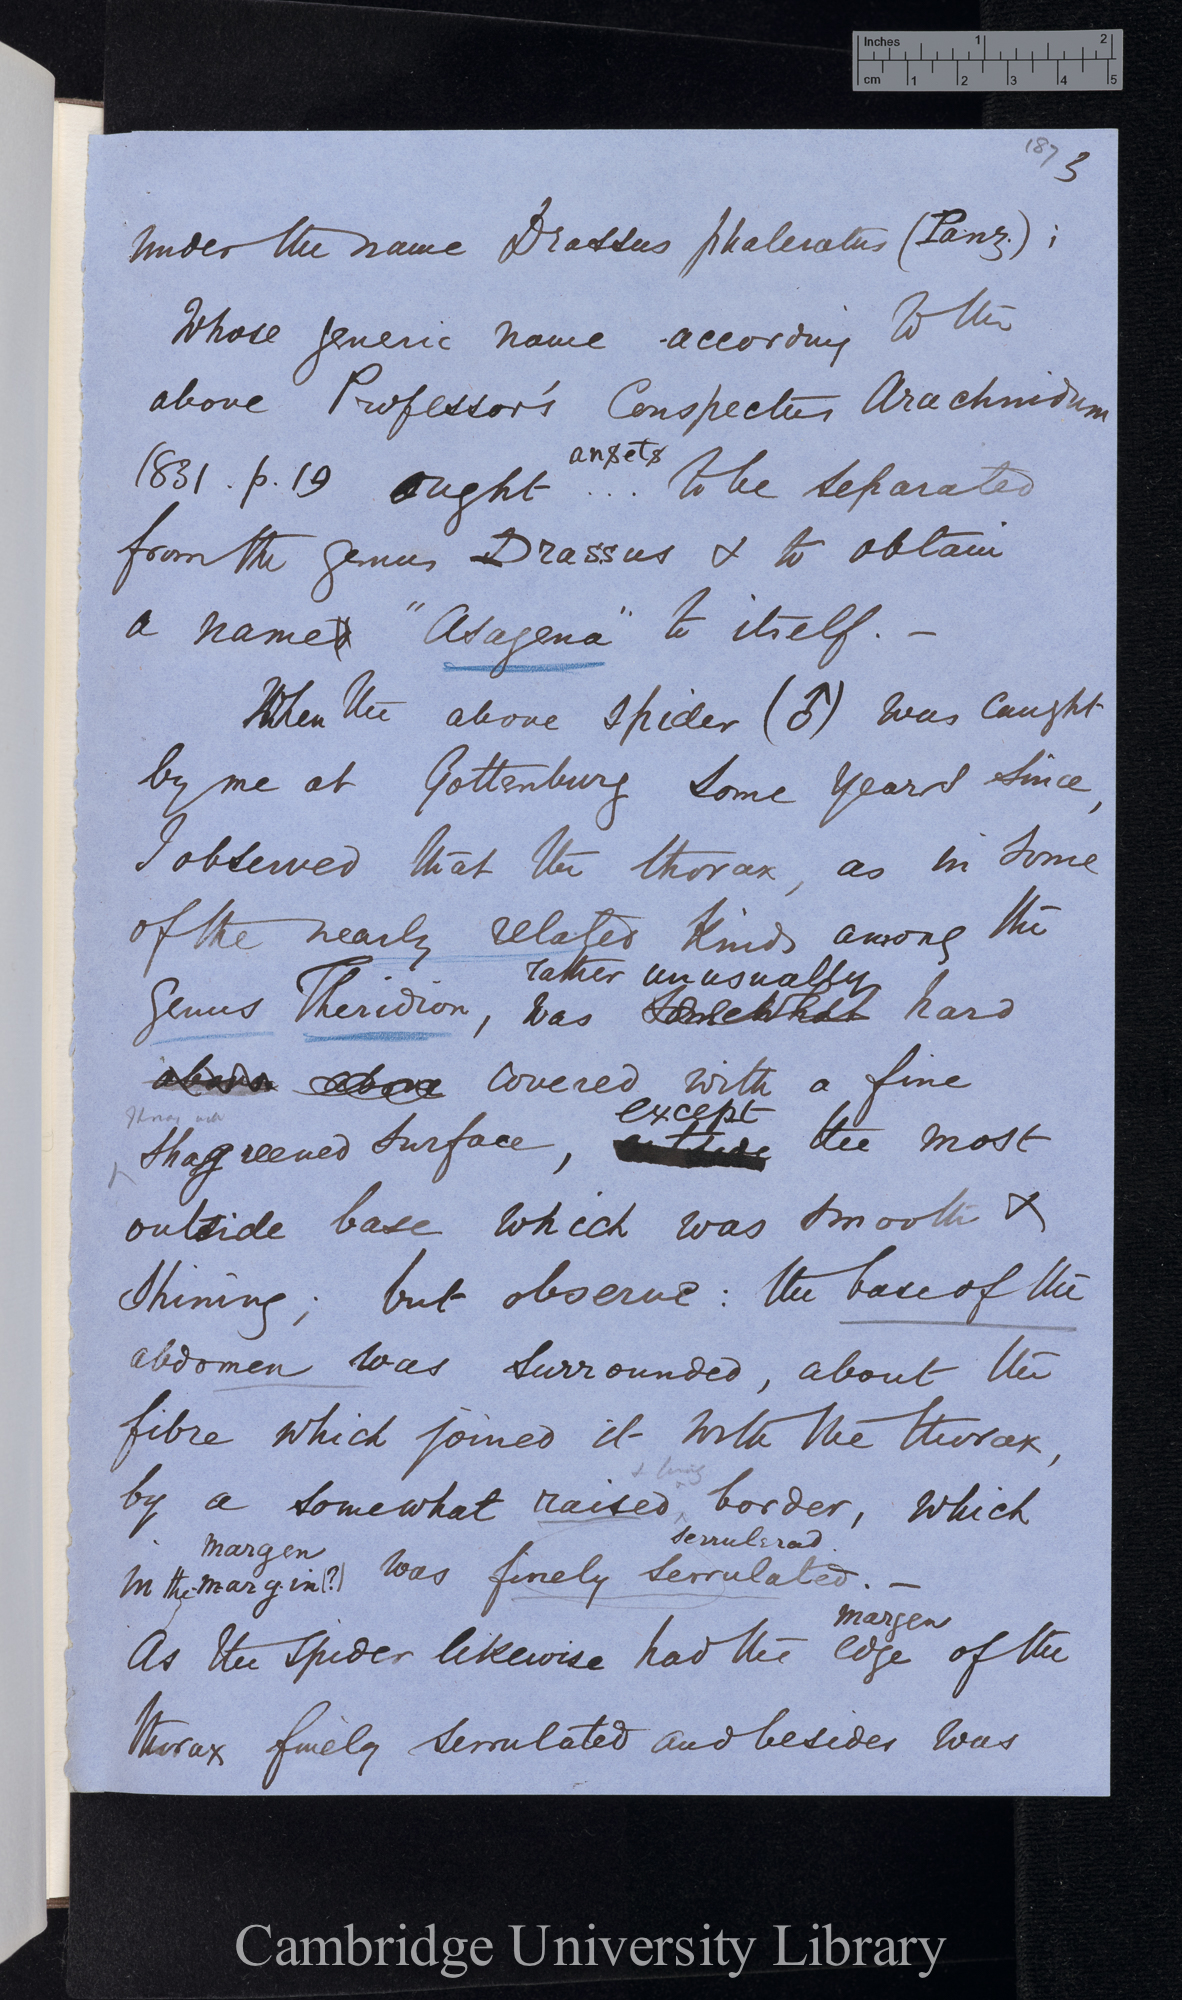 Inches 1 2
cm 1 2 3 4 5
187 3
under the name Drassus phaleratus (Panz.) ;
Whose generic name according to the
above Professor's Conspectus Arachnidum
ansets
1831. p. 19 ought ... to be separated
from the genus Drassus & to obtain
a name "Asagena" to itself. —
When the above spider (♂) was caught
by me at Gottenburg some years since,
I observed that the thorax, as in some
of the nearly related kinds among the
rather unusually
genus Theridion, was somewhat hard
above above covered with a fine
except
shagreened surface, outside the most
outside base which was smooth &
shining; but observe: the base of the
abdomen was surrounded, about the
fibre which joined it with the thorax,
by a somewhat raised border, which
margen serrulerad.
in the margin(?) was finely serrulated. —
margen
As the spider likewise had the edge of the
thorax finely serrulated and besides was
Cambridge University Library